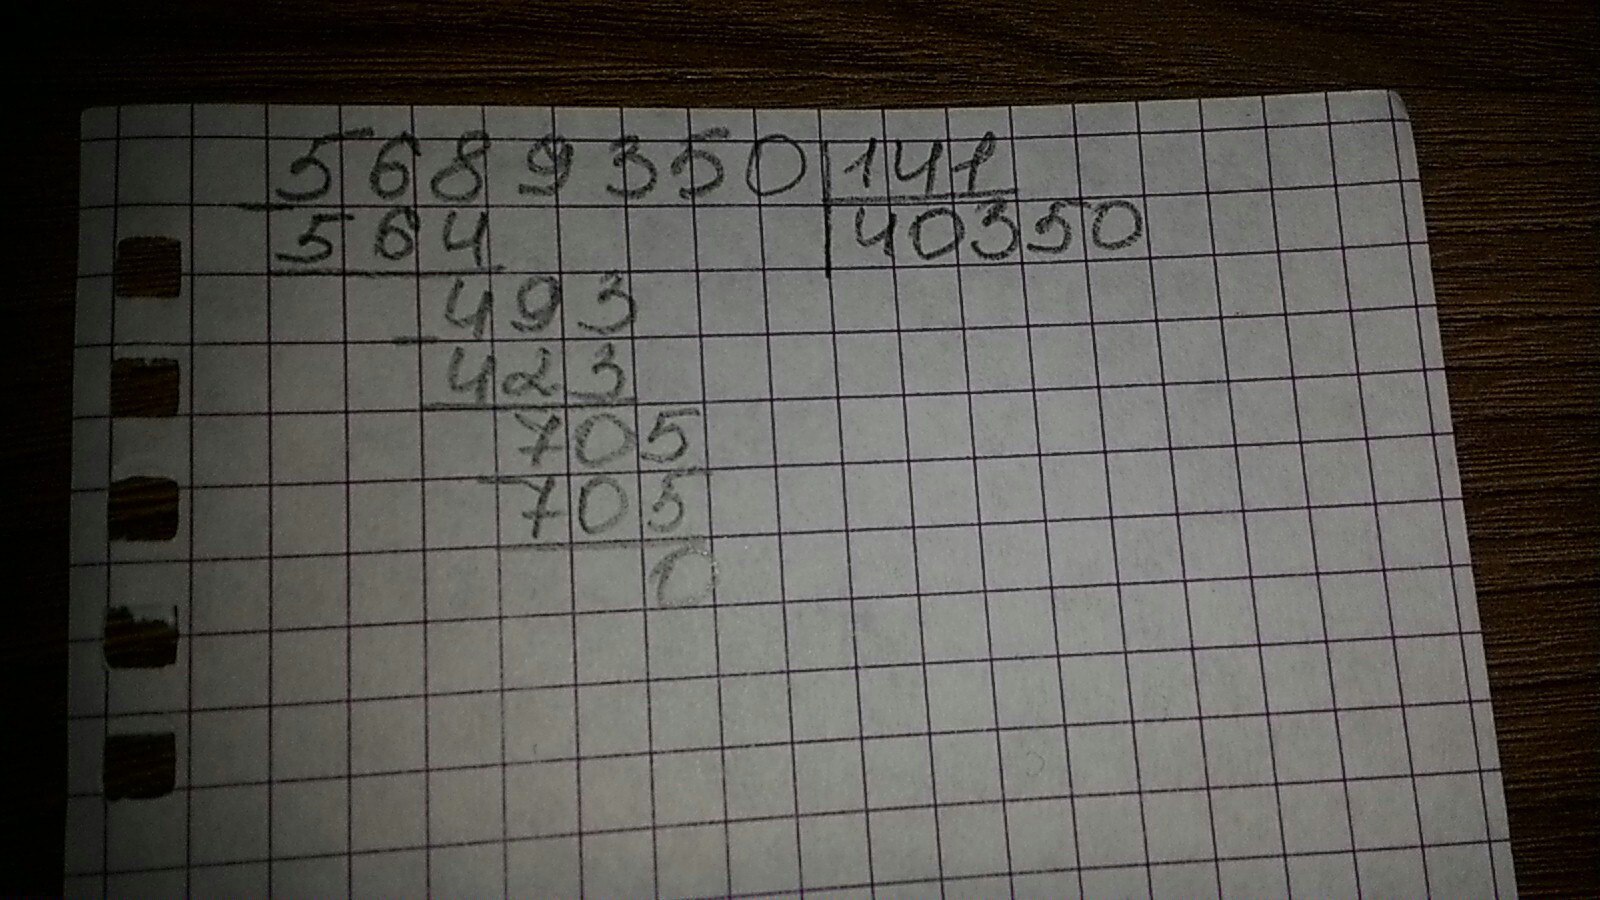 5689350 141
564 40350
493
423
705
705
0